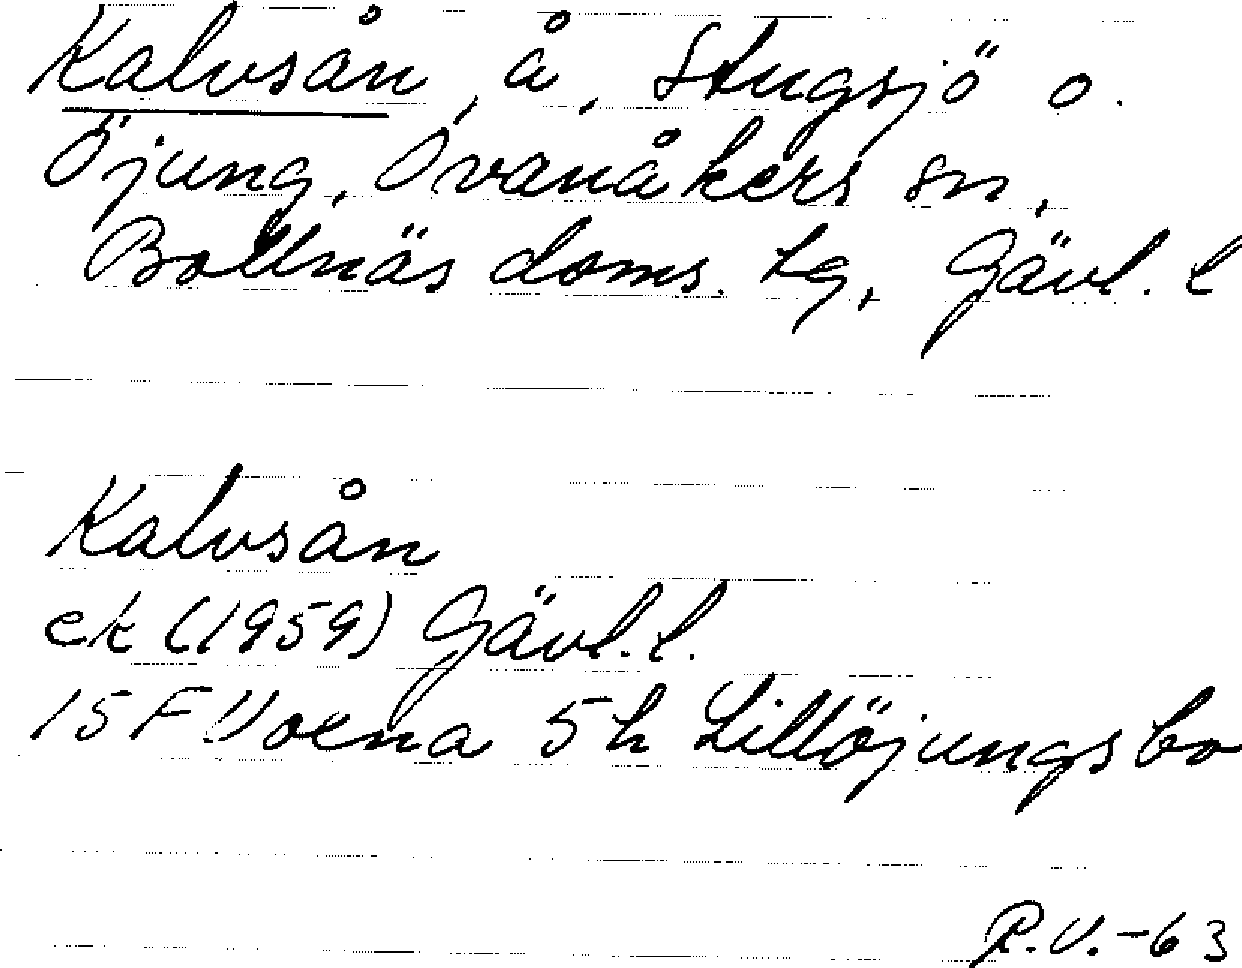 Kalvsån, å, Stugsjö o.
Öjung, Ovanåkers sn,
Bollnäs doms. tg, Gävl. l
Kalvsån
ek (1959) Gävl. l.
15 F Voxna 5h Lillöjungsbo
R.V.-63